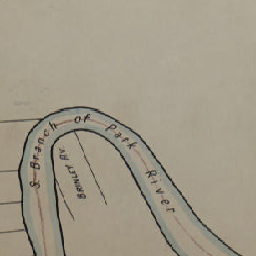 S. Branch of Park River
BRINLEY AV.